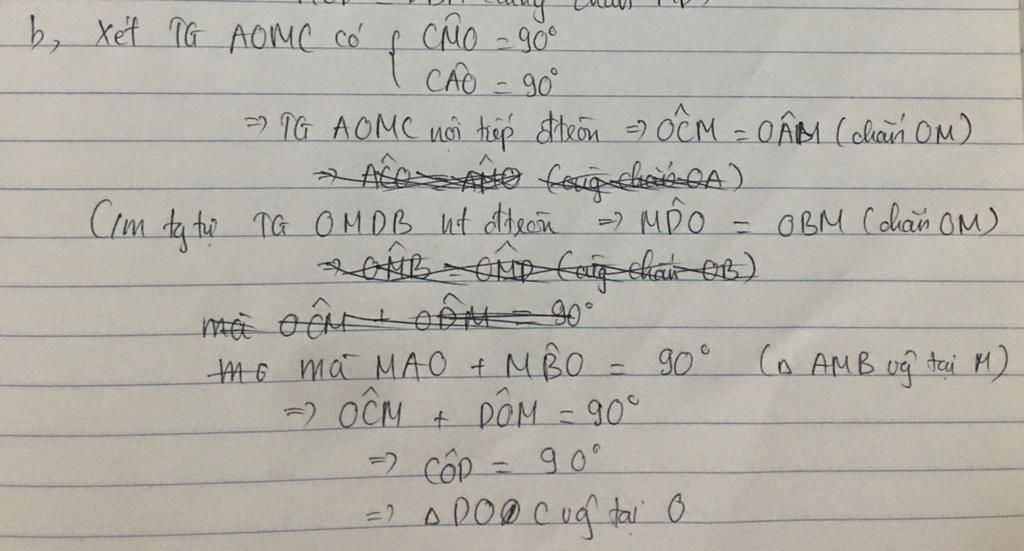 b, Xét TG AOMC có { CM̂O = 90°
CÂO = 90°
=> TG AOMC nội tiếp đtròn => OĈM = OÂM (chắn OM)
=> AĈO = AM̂O (cùng chắn OA)
C/m tg tự TG OMDB nt đtròn => MD̂O = OBM (chắn OM)
=> OM̂B = OM̂D (cùng chắn OB)
mà OĈM + OD̂M = 90°
mà MAO + MB̂O = 90° (Δ AMB vg tại M)
=> OĈM + DÔM = 90°
=> CÔD = 90°
=> Δ DOC vg tại O